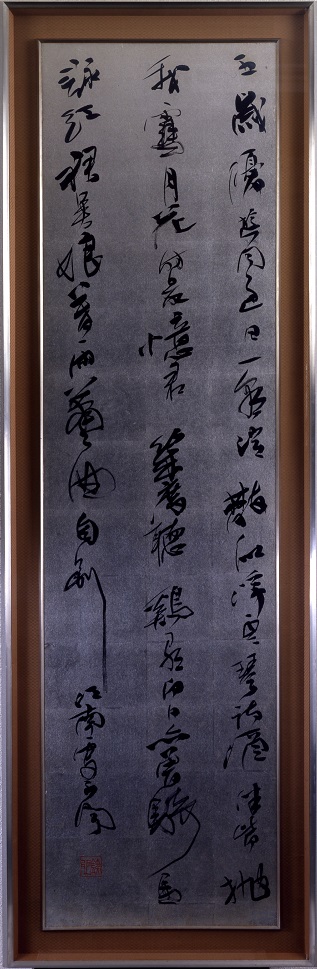 五歳優游同過日一朝消散似浮雲琴詩酒伴皆抛
我雪月花時最憶君幾度聽鶏歌白日亦曽騎馬
詠紅裙呉娘暮雨蕭蕭曲自別江南更不聞